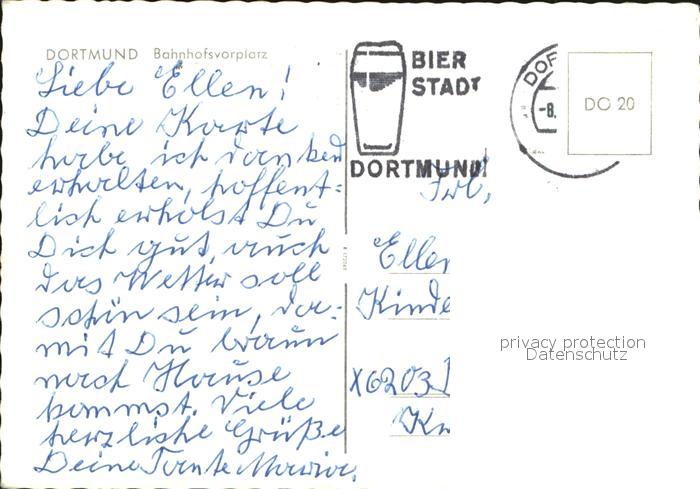 DORTMUND Bahnhofsvorplatz
Liebe Ellen!
Deine Karte
habe ich dankend
erhalten, hoffent-
lich erholst Du
Dich gut, auch
das Wetter soll
schön sein, da-
mit Du braun
nach Hause
kommst. Viele
herzliche Grüße
Deine Tante Maria.
BIER
STADT
DORTMUND
DO 20
Frl.
Ellen
Kinde
X6203
privacy protection
Datenschutz